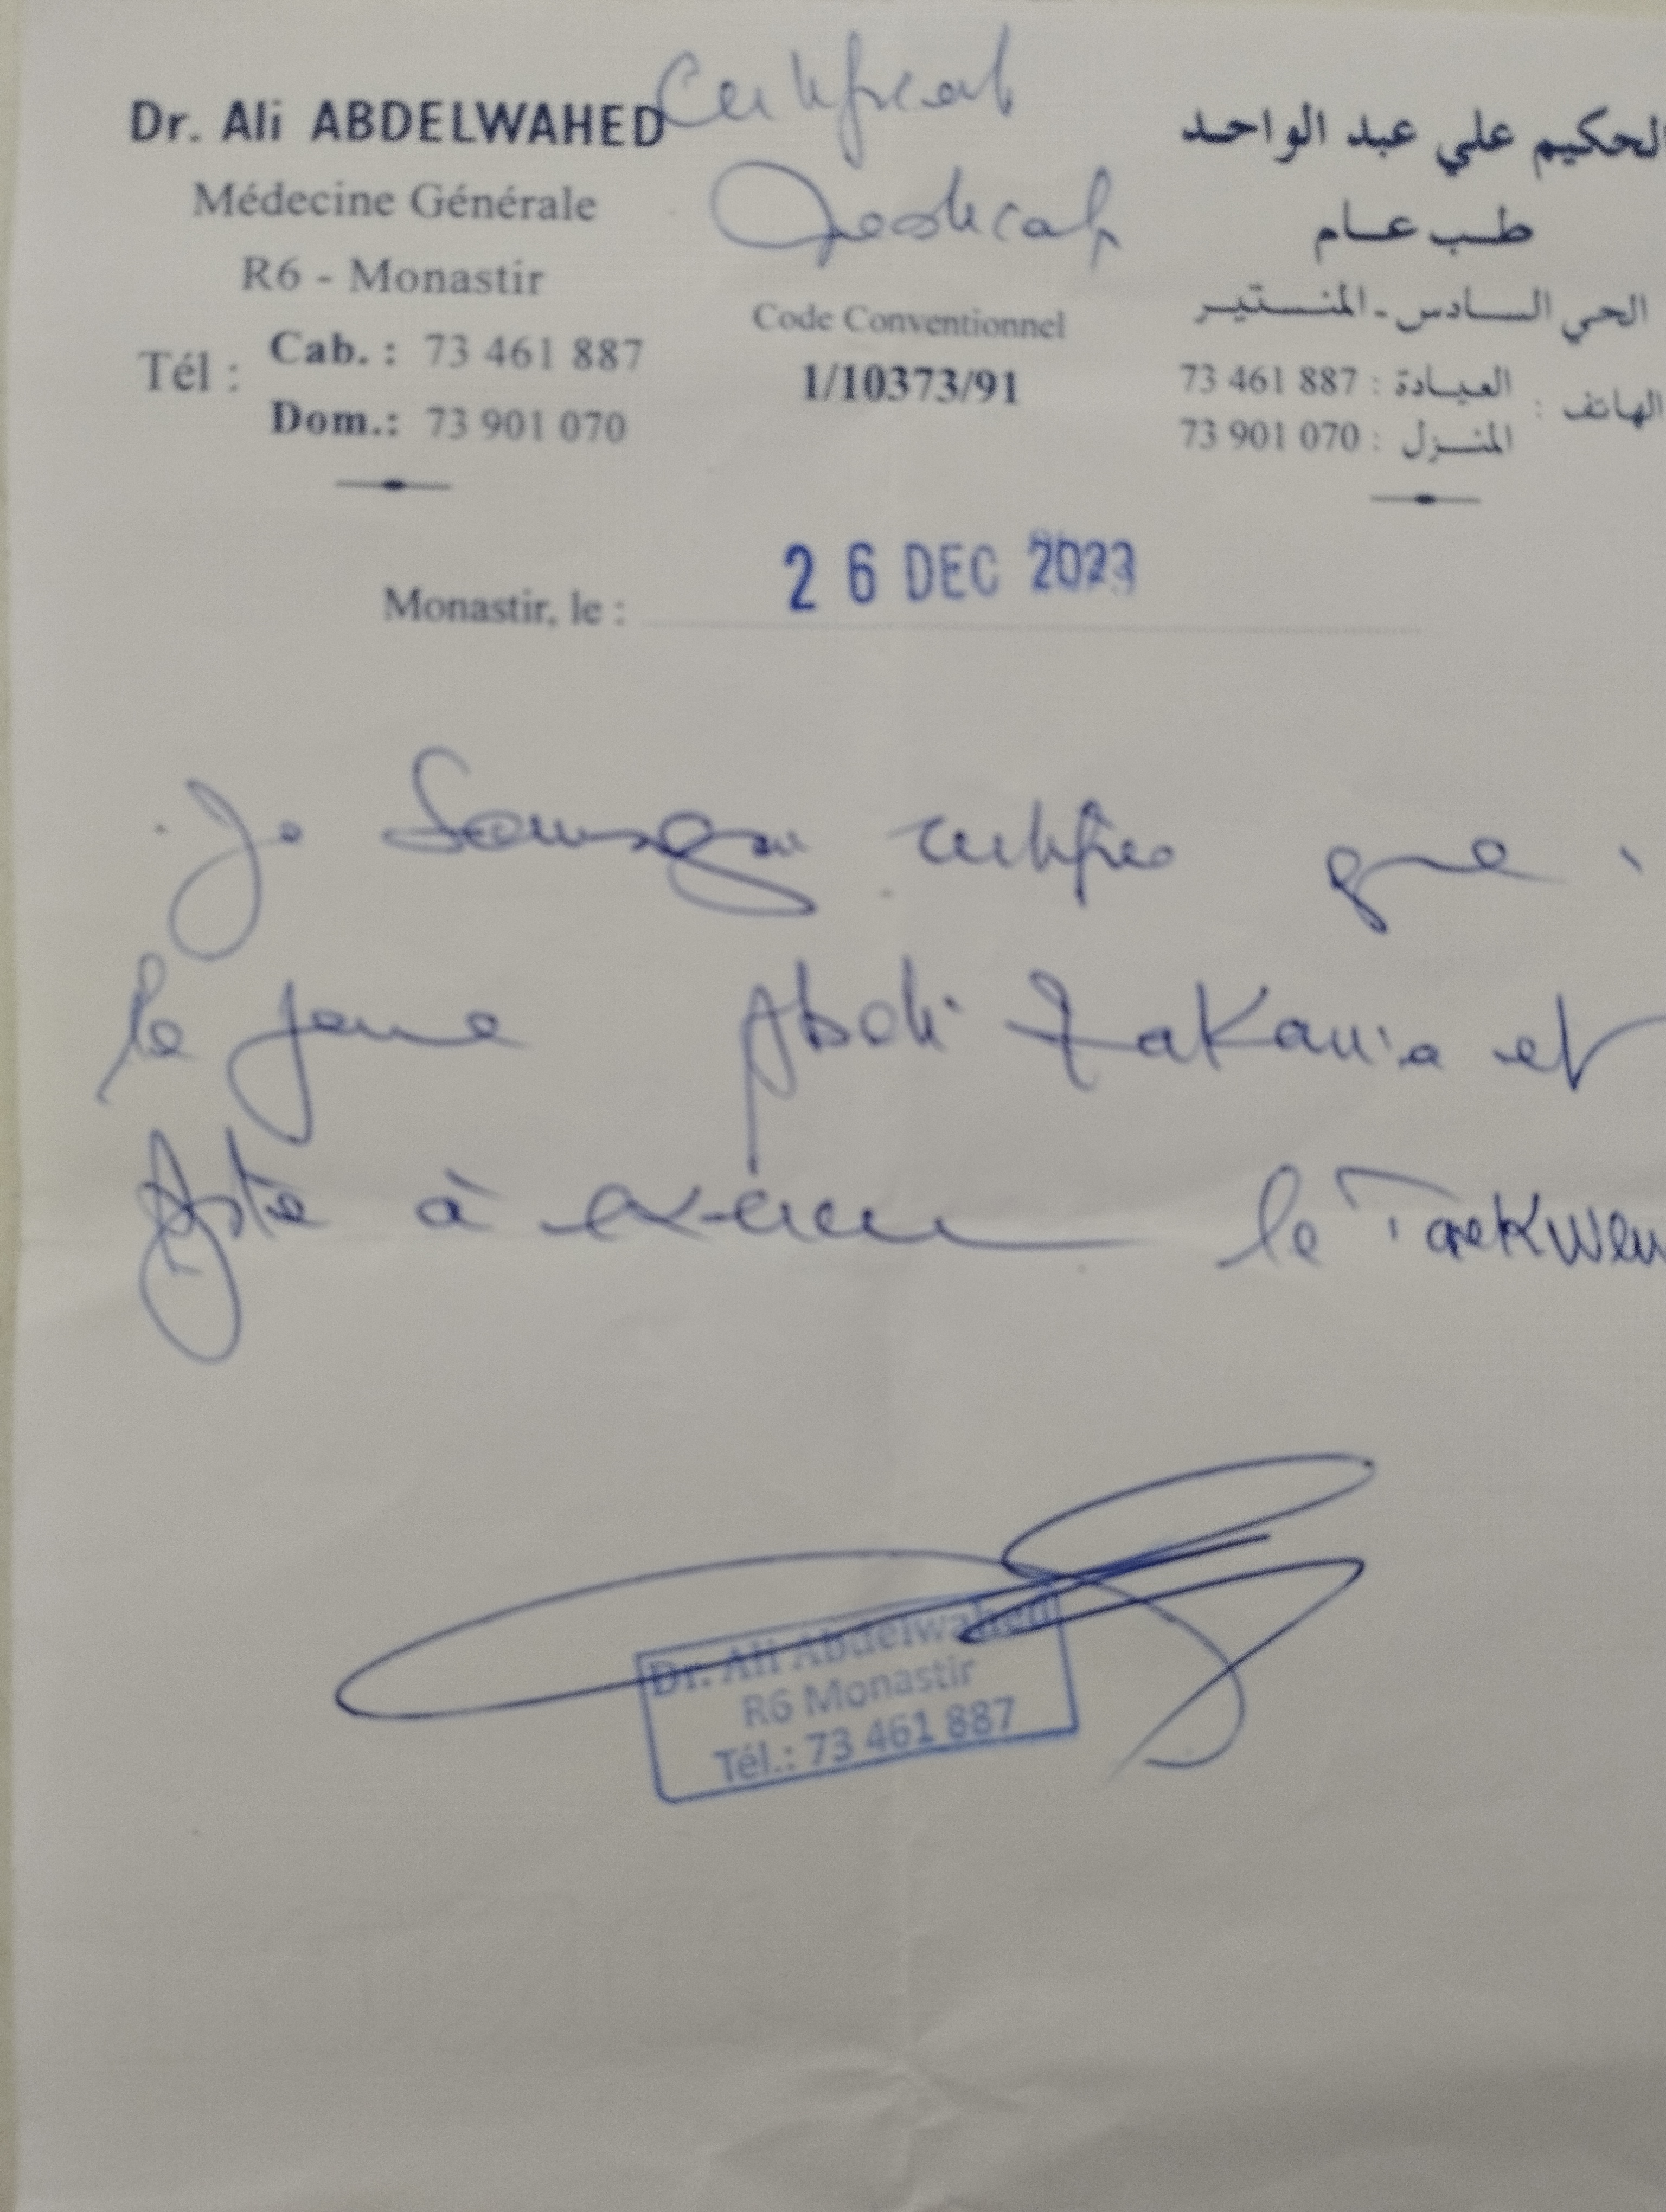 Certificat
Dr. Ali ABDELWAHED
Médecine Générale
R6 - Monastir
Tél :
Cab. : 73 461 887
Dom.: 73 901 070
Code Conventionnel
1/10373/91
الحكيم علي عبد الواحد
طب عام
الحي السادس - المنستير
الهاتف :
العيادة : 73 461 887
المنزل : 73 901 070
Monastir, le : 26 DEC 2023
Je certifie que
le jeune Abdi Zakaria et
Apte à exercer le Taekwen
Dr. Ali Abdelwahed
R6 Monastir
Tél.: 73 461 887